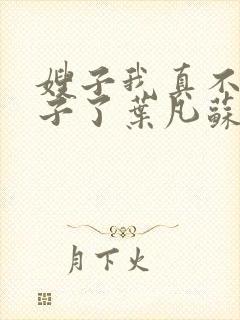 嫂子我真不
子了葉凡蘇
月下火